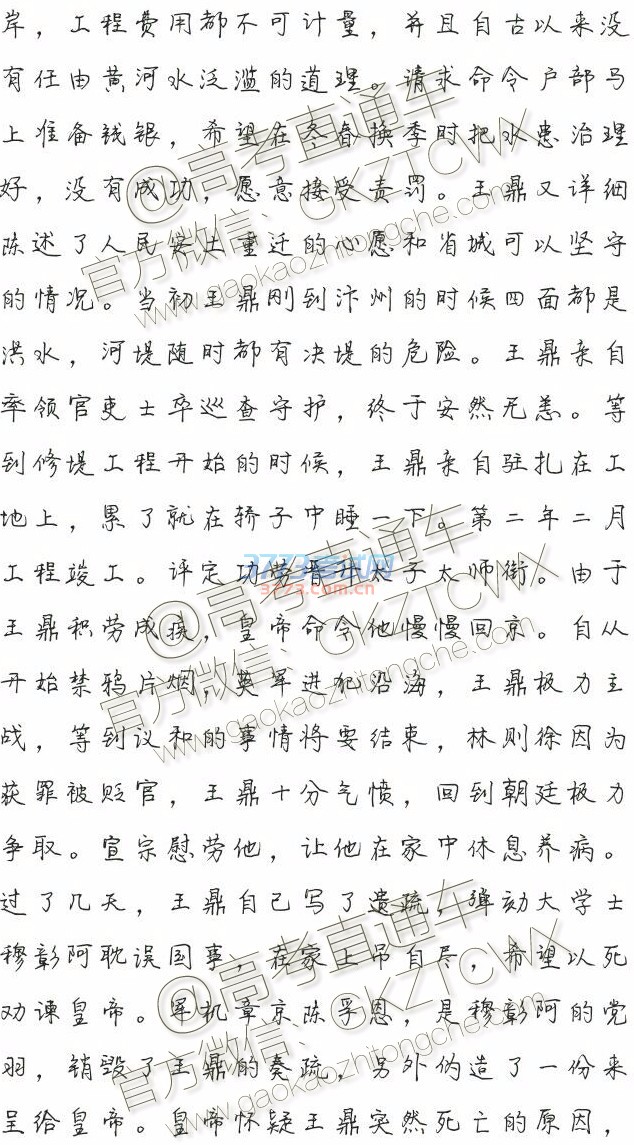 岸，工程费用都不可计量，并且自古以来没
有任由黄河水泛滥的道理。请求命令户部马
上准备钱银，希望在冬春换季时把水患治理
好，没有成功，愿意接受责罚。王鼎又详细
陈述了人民安土重迁的心愿和省城可以坚守
的情况。当初王鼎刚到汴州的时候四面都是
洪水，河堤随时都有决堤的危险。王鼎亲自
率领官吏士卒巡查守护，终于安然无恙。等
到修堤工程开始的时候，王鼎亲自驻扎在工
地上，累了就在轿子中睡一下。第二年二月
工程竣工。评定功劳晋升太子太师衔。由于
王鼎积劳成疾，皇帝命令他慢慢回京。自从
开始禁鸦片烟，英军进犯沿海，王鼎极力主
战，等到议和的事情将要结束，林则徐因为
获罪被贬官，王鼎十分气愤，回到朝廷极力
争取。宣宗慰劳他，让他在家中休息养病。
过了几天，王鼎自己写了遗疏，弹劾大学士
穆彰阿耽误国事，在家上吊自尽，希望以死
劝谏皇帝。军机章京陈孚恩，是穆彰阿的党
羽，销毁了王鼎的奏疏，另外伪造了一份来
呈给皇帝。皇帝怀疑王鼎突然死亡的原因，
@高考直通车
官方微信：GKZTCWX
www.gaokaozhitongche.com
3773考试网
3773.com.cn
@高考直通车
官方微信：GKZTCWX
www.gaokaozhitongche.com
@高考直通车
官方微信：GKZTCWX
www.gaokaozhitongche.com